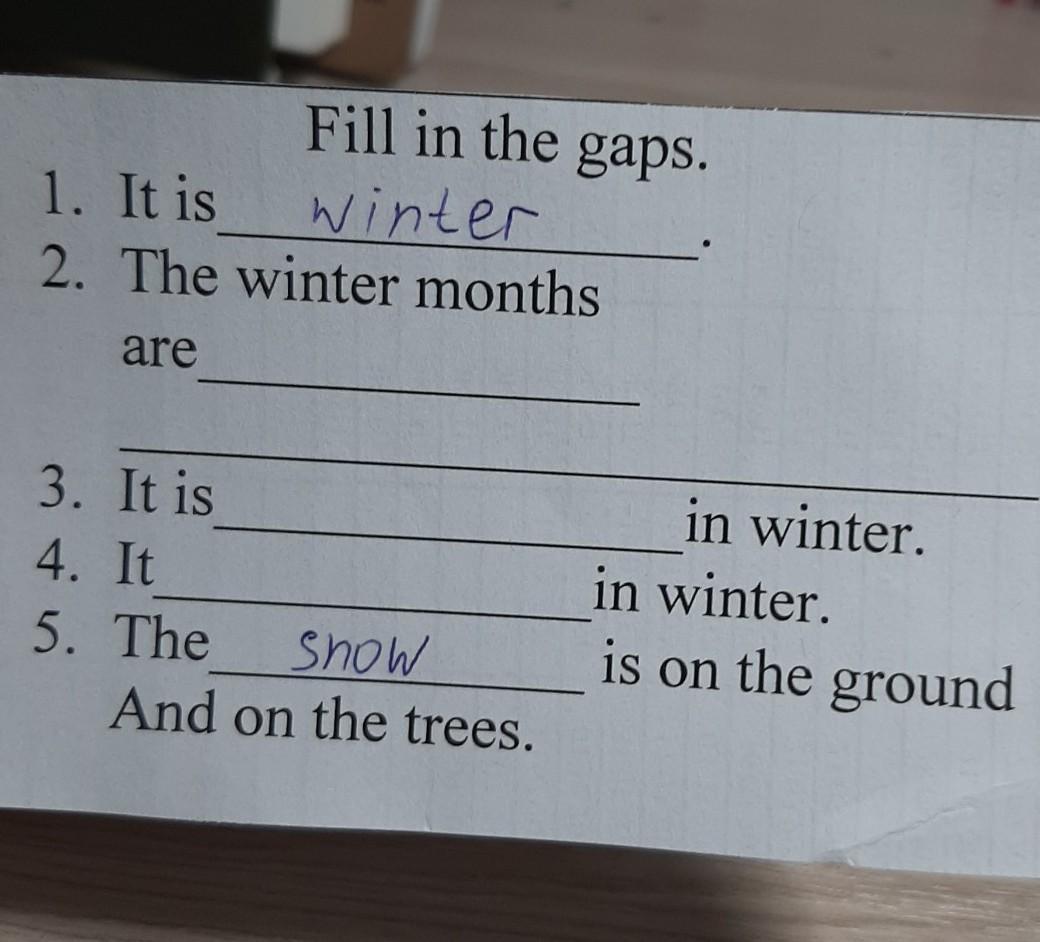 Fill in the gaps.
1. It is winter.
2. The winter months
are
3. It is in winter.
4. It in winter.
5. The snow is on the ground
And on the trees.